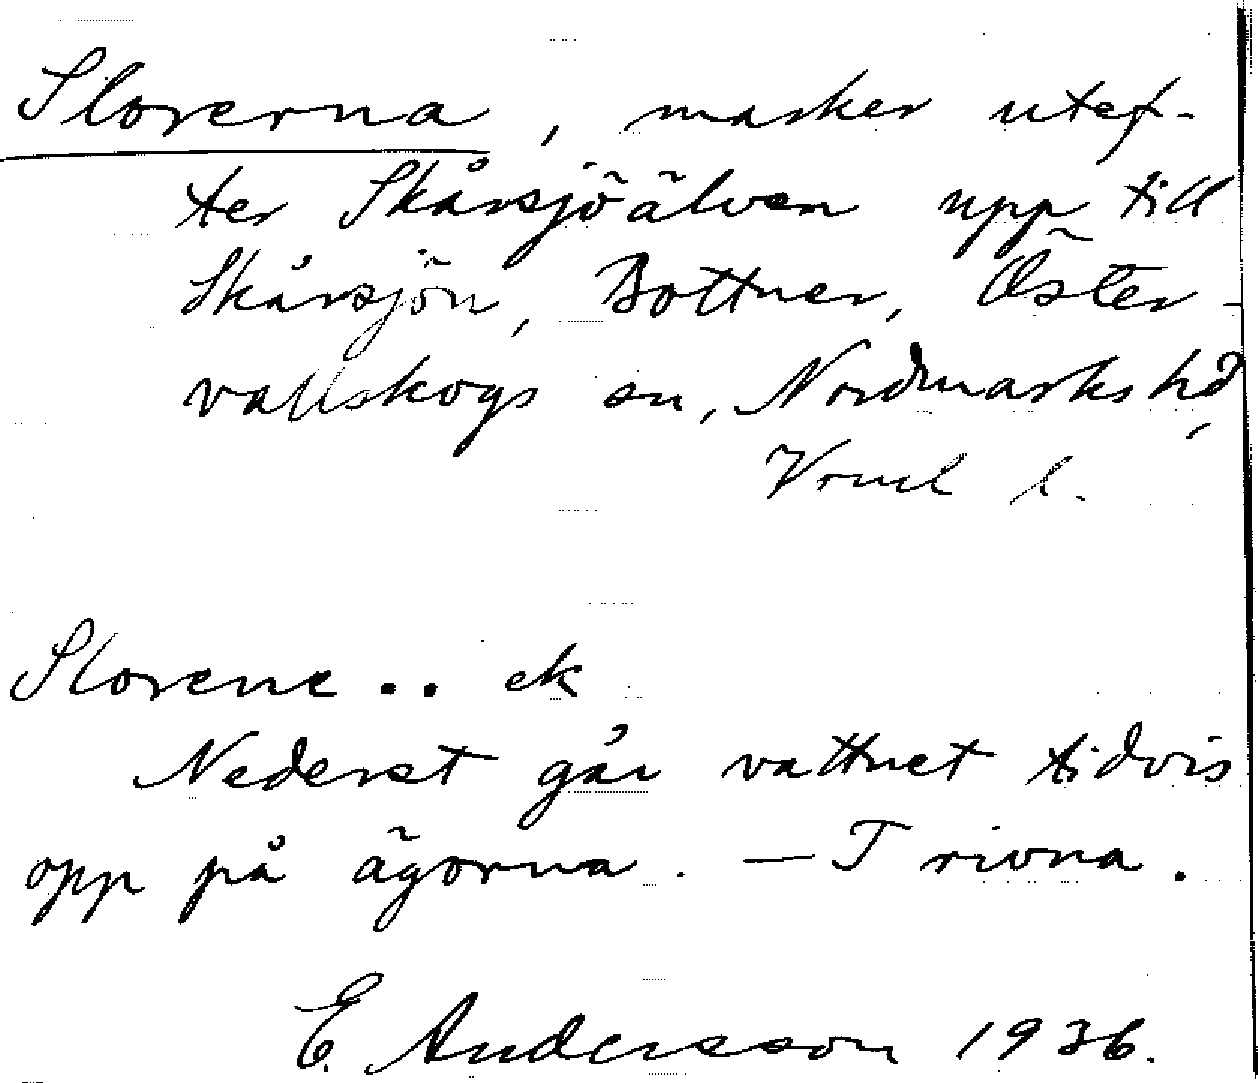 Slorerna, marker utef-
ter Skårsjöälven upp till
Skårsjön, Bottner, Öster-
vallskogs sn, Nordmarks hd,
Vrml l.
Slorene.. ek
Nederst går vattnet tidvis
opp på ägorna. — T rivna.
E. Andersson 1936.